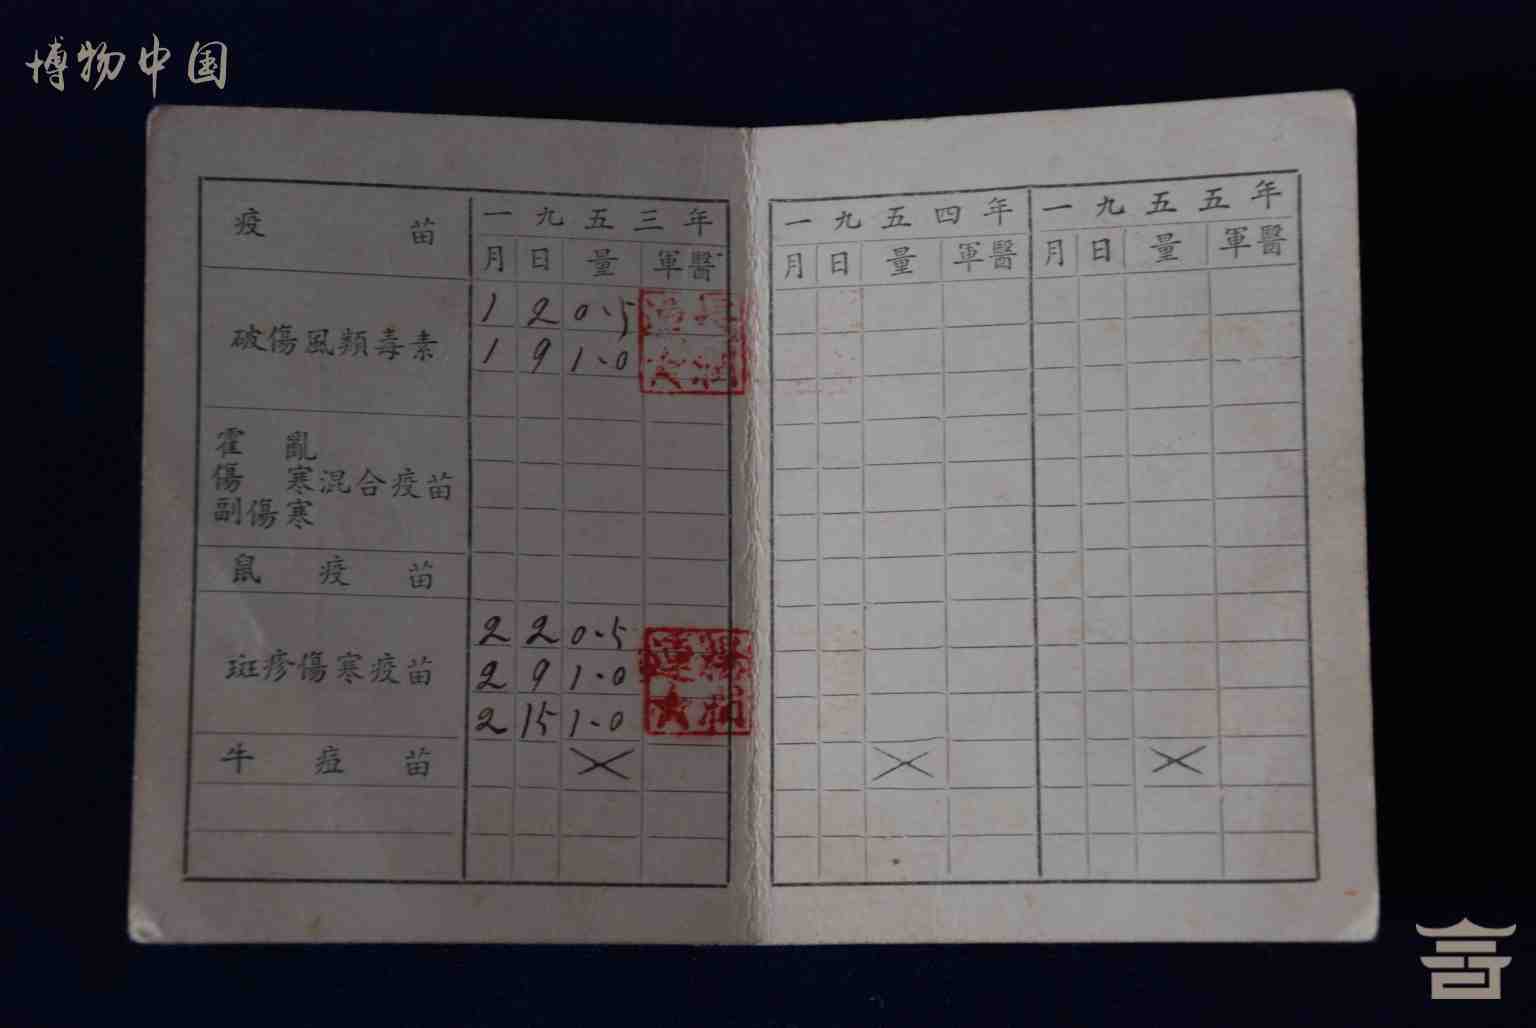 博物中国
疫苗 一九五三年 一九五四年 一九五五年
月 日 量 軍醫 月 日 量 軍醫 月 日 量 軍醫
破傷風類毒素
1 2 0.5
1 9 1.0
霍亂
傷寒混合疫苗
副傷寒
鼠疫苗
斑疹傷寒疫苗
2 2 0.5
2 9 1.0
2 15 1.0
牛痘苗